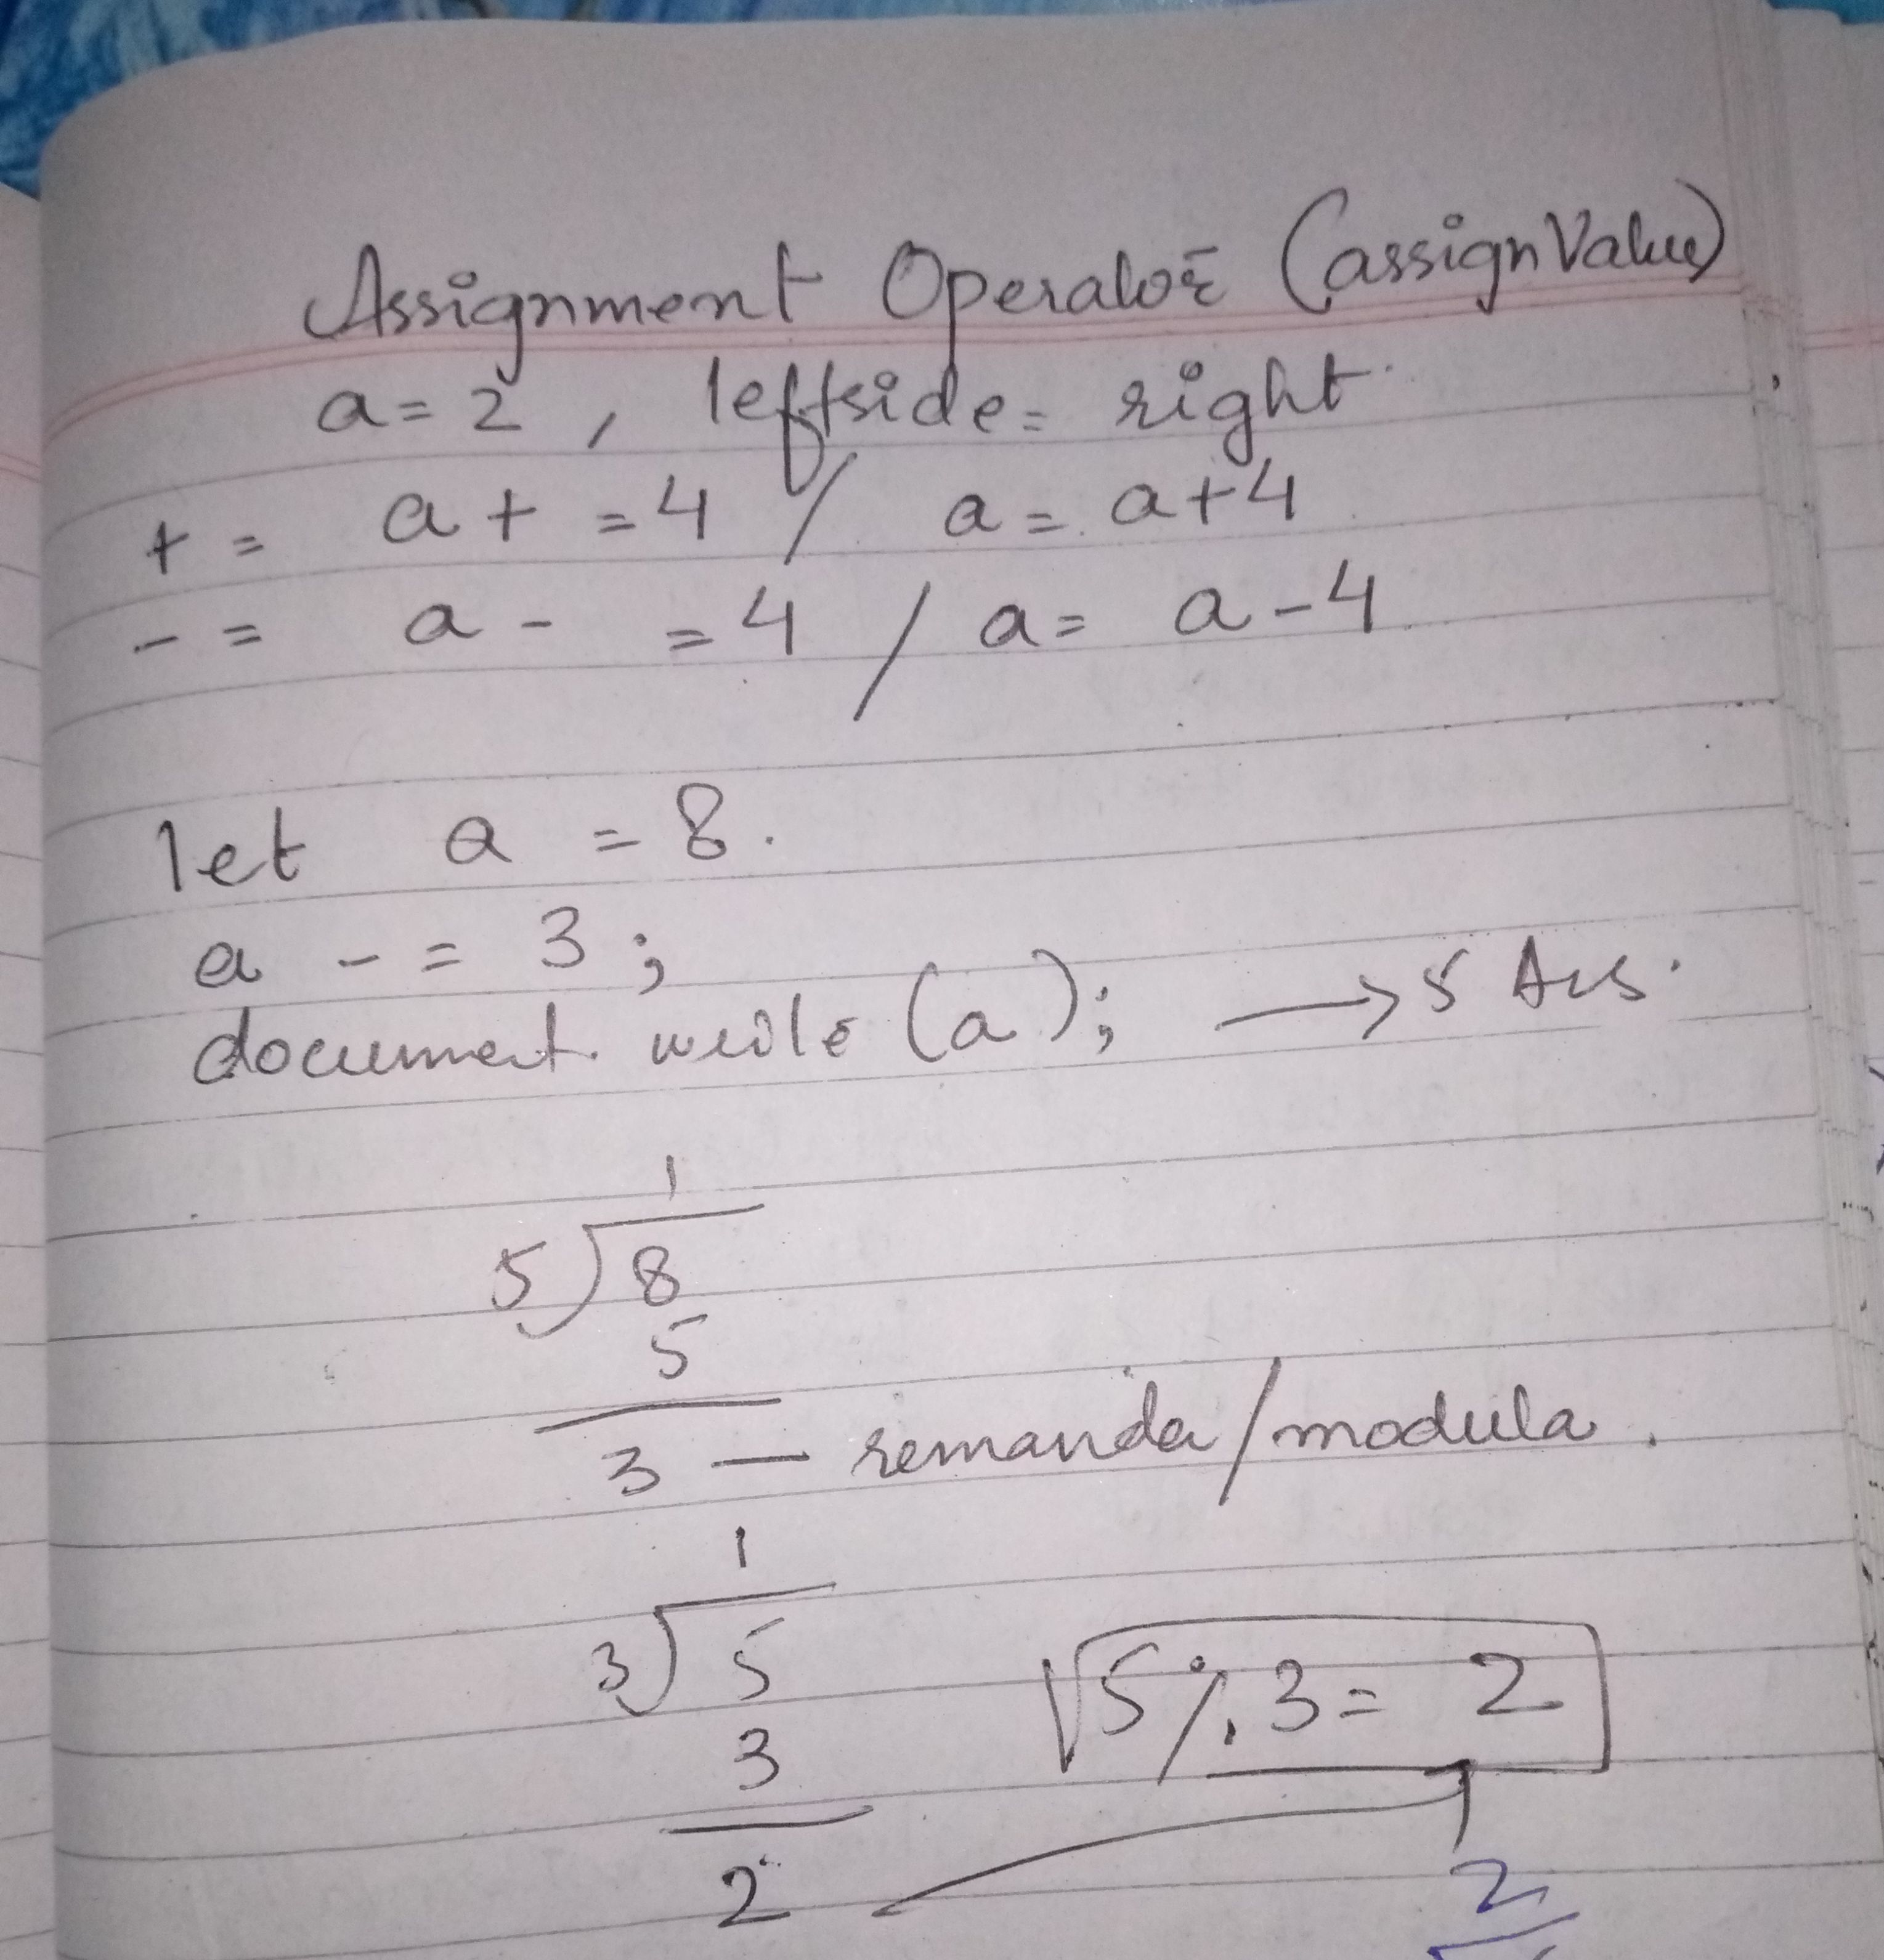 Assignment Operator (assign Value)
a = 2 , leftside = right
+ = a + = 4 / a = a + 4
- = a - = 4 / a = a - 4
let a = 8.
a - = 3 ;
document. write (a); → 5 Ans.
1
5 ) 8
5
3 — remanda / modula .
1
3 ) 5
3
2
5 % 3 = 2
2